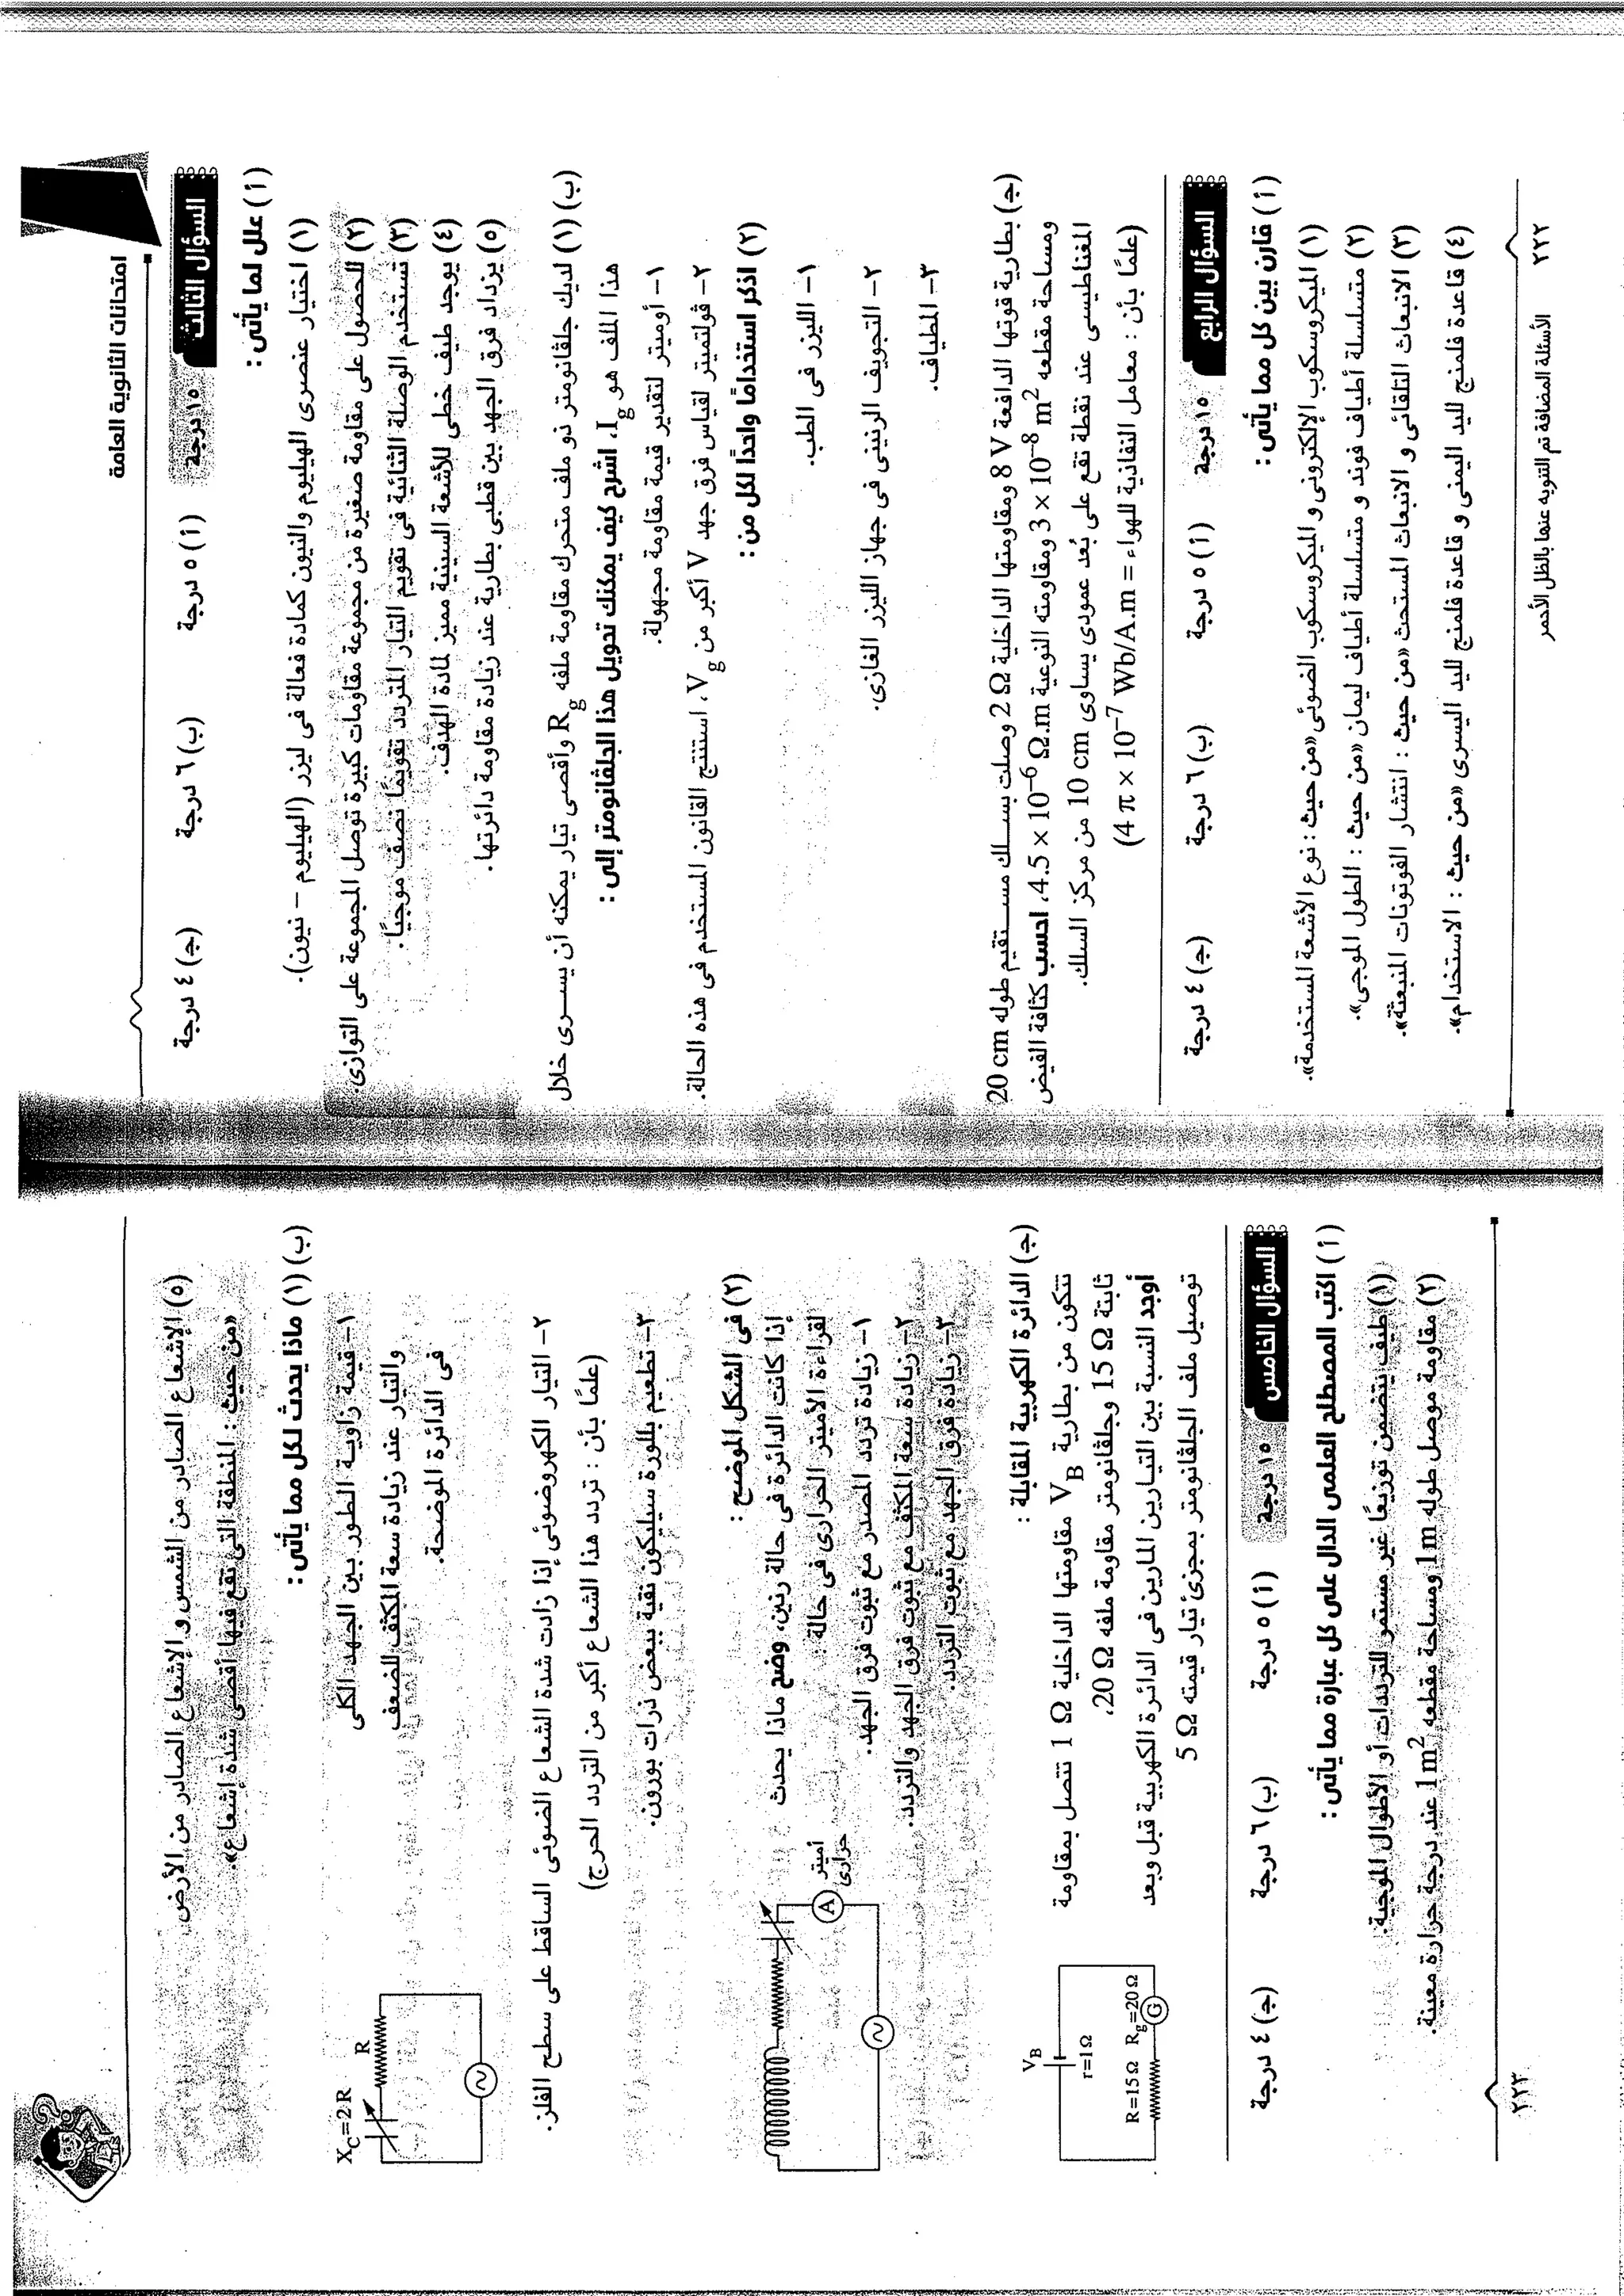 امتحانات الثانوية العامة
السؤال الثالث ١٥ درجة (أ) ٥ درجة (ب) ٦ درجة (جـ) ٤ درجة
(أ) علل لما يأتى :
(١) اختيار عنصرى الهيليوم والنيون كمادة فعالة فى ليزر (الهيليوم – نيون).
(٢) للحصول على مقاومة صغيرة من مجموعة مقاومات كبيرة توصل المجموعة على التوازى.
(٣) تستخدم الوصلة الثنائية فى تقويم التيار المتردد تقويمًا نصف موجيًا.
(٤) يوجد طيف خطى للأشعة السينية مميز لمادة الهدف.
(٥) يزداد فرق الجهد بين قطبى بطارية عند زيادة مقاومة دائرتها.
(ب) (١) لديك جلڤانومتر ذو ملف متحرك مقاومة ملفه Rg وأقصى تيار يمكنه أن يسرى خلال
هذا الملف هو Ig، اشرح كيف يمكنك تحويل هذا الجلڤانومتر إلى :
١- أوميتر لتقدير قيمة مقاومة مجهولة.
٢- ڤولتميتر لقياس فرق جهد V أكبر من Vg، استنتج القانون المستخدم فى هذه الحالة.
(٢) اذكر استخدامًا واحدًا لكل من :
١- الليزر فى الطب.
٢- التجويف الرنينى فى جهاز الليزر الغازى.
٣- المطياف.
(جـ) بطارية قوتها الدافعة 8 V ومقاومتها الداخلية 2 Ω وصلت بسلك مستقيم طوله 20 cm
ومساحة مقطعه 3 × 10⁻⁸ m² ومقاومته النوعية 4.5 × 10⁻⁶ Ω.m، احسب كثافة الفيض
المغناطيسى عند نقطة تقع على بُعد عمودى يساوى 10 cm من مركز السلك.
(علمًا بأن : معامل النفاذية للهواء = 4 π × 10⁻⁷ Wb/A.m)
السؤال الرابع ١٥ درجة (أ) ٥ درجة (ب) ٦ درجة (جـ) ٤ درجة
(أ) قارن بين كل مما يأتى :
(١) الميكروسكوب الإلكترونى و الميكروسكوب الضوئى «من حيث : نوع الأشعة المستخدمة».
(٢) متسلسلة أطياف فوند و متسلسلة أطياف ليمان «من حيث : الطول الموجى».
(٣) الانبعاث التلقائى و الانبعاث المستحث «من حيث : انتشار الفوتونات المنبعثة».
(٤) قاعدة فلمنج لليد اليمنى و قاعدة فلمنج لليد اليسرى «من حيث : الاستخدام».
الأسئلة المضافة تم التنويه عنها بالظل الأحمر
٢٢٢
(٥) الإشعاع الصادر من الشمس و الإشعاع الصادر من الأرض
«من حيث : المنطقة التى تقع فيها أقصى شدة إشعاع».
(ب) (١) ماذا يحدث لكل مما يأتى :
١- قيمة زاوية الطور بين الجهد الكلى
والتيار عند زيادة سعة المكثف للضعف
فى الدائرة الموضحة.
XC=2R R
٢- التيار الكهروضوئى إذا زادت شدة الشعاع الضوئى الساقط على سطح الفلز.
(علمًا بأن : تردد هذا الشعاع أكبر من التردد الحرج)
٣- تطعيم بللورة سيليكون نقية ببعض ذرات بورون.
(٢) فى الشكل الموضح :
إذا كانت الدائرة فى حالة رنين، وضح ماذا يحدث
لقراءة الأميتر الحرارى فى حالة :
١- زيادة تردد المصدر مع ثبوت فرق الجهد.
٢- زيادة سعة المكثف مع ثبوت فرق الجهد والتردد.
٣- زيادة فرق الجهد مع ثبوت التردد.
أميتر
حرارى
A
(جـ) الدائرة الكهربية المقابلة :
تتكون من بطارية VB مقاومتها الداخلية 1 Ω تتصل بمقاومة
ثابتة 15 Ω وجلڤانومتر مقاومة ملفه 20 Ω،
أوجد النسبة بين التيارين المارين فى الدائرة الكهربية قبل وبعد
توصيل ملف الجلڤانومتر بمجزئ تيار قيمته 5 Ω
VB
r=1Ω
R=15Ω Rg=20Ω
G
السؤال الخامس ١٥ درجة (أ) ٥ درجة (ب) ٦ درجة (جـ) ٤ درجة
(أ) اكتب المصطلح العلمى الدال على كل عبارة مما يأتى :
(١) طيف يتضمن توزيعًا غير مستمر للترددات أو الأطوال الموجية.
(٢) مقاومة موصل طوله 1m ومساحة مقطعه 1m² عند درجة حرارة معينة.
٢٢٣